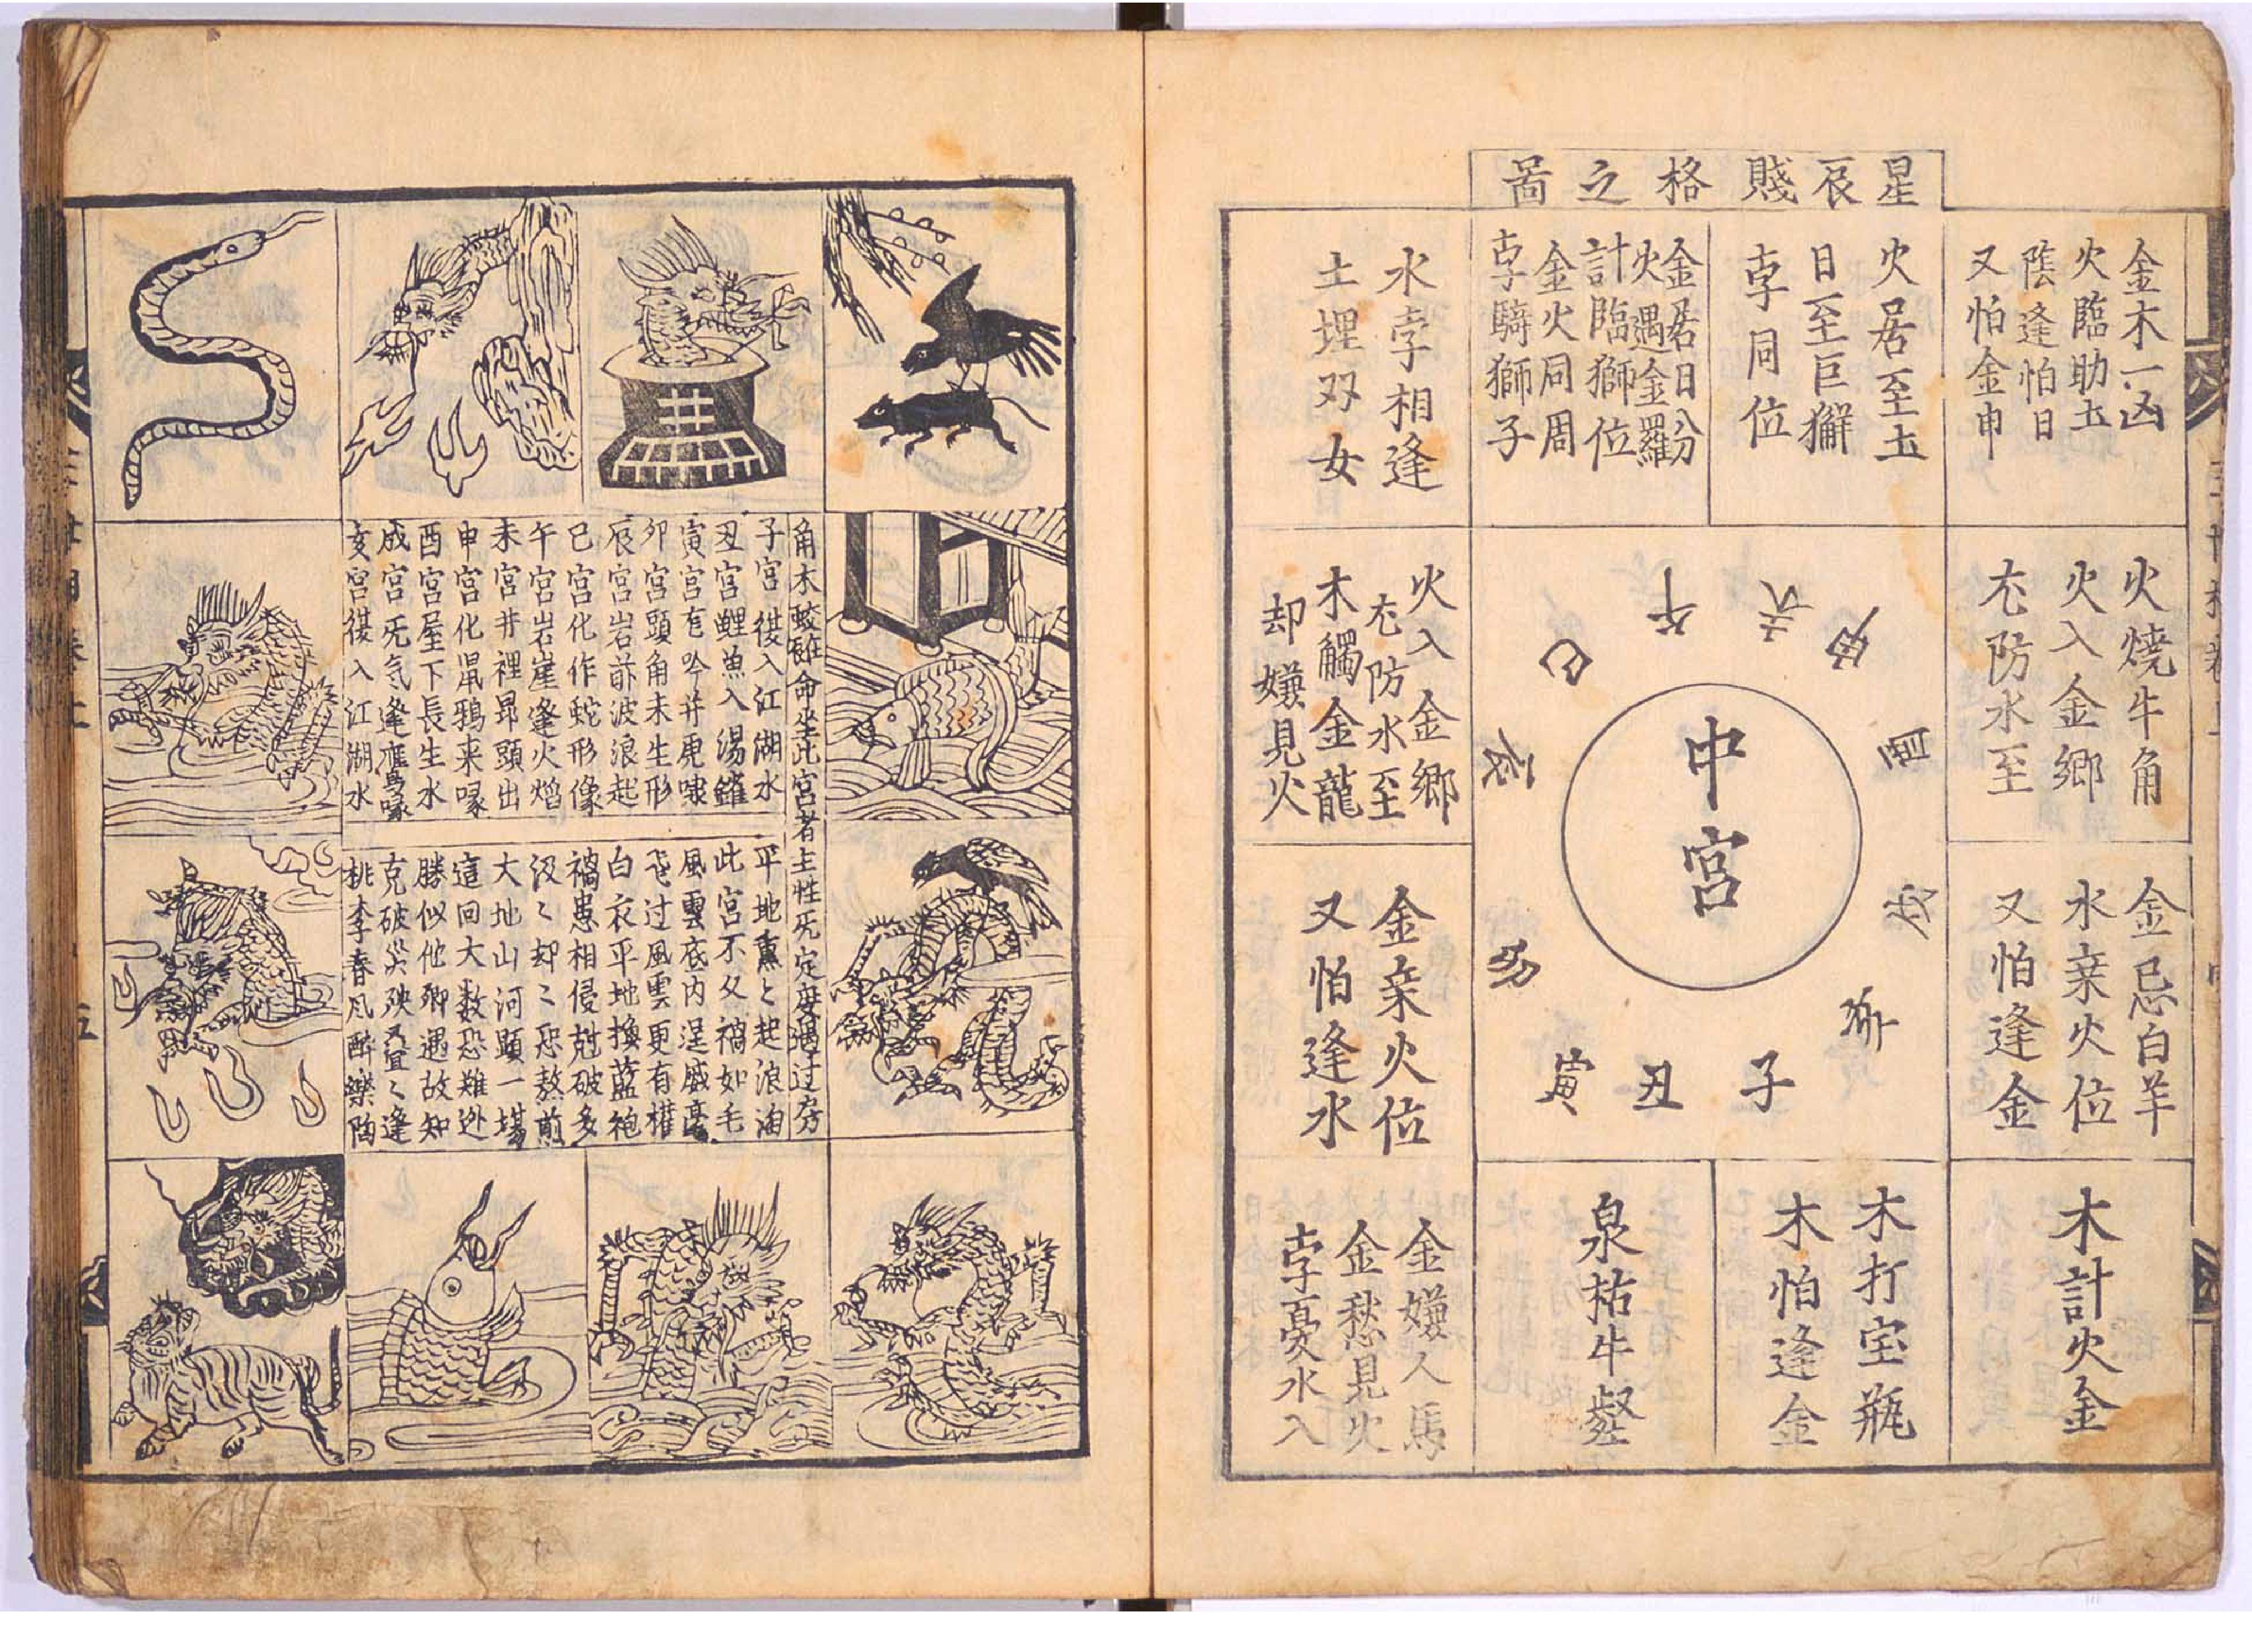 星辰賤格之圖
金木一凶
火臨助土
陰逢怕日
又怕金申
火居至土
日至巨獬
孛同位
金居日分
火遇金羅
計臨獅位
金火同周
孛騎獅子
水孛相逢
土埋双女
火燒牛角
火入金鄉
冘防水至
火入金鄉
冘防水至
木觸金龍
却嫌見火
金忌白羊
水亲火位
又怕逢金
金亲火位
又怕逢水
木計火金
木打宝瓶
木怕逢金
泉祐牛
金嫌人馬
金愁見火
孛憂水入
中宮
子
丑
寅
卯
辰
巳
午
未
申
酉
戌
亥
角木蛟 命坐此宮者主性死定度過过房
子宮從入江湖水
丑宮鯉魚入湯鑵
寅宮竜吟并虎啸
卯宮頭角未生形
辰宮岩前波浪起
巳宮化作蛇形像
午宮岩崖逢火熷
未宮井裡昻頭出
申宮化鼠鴉来啄
酉宮屋下長生水
戌宮死気逢鷹啄
亥宮從入江湖水
平地薫〻起浪淘
此宮不久禍如毛
風雲底内逞威高
飞过风雲更有權
白衣平地換藍袍
禍患相侵尅破多
汲〻却〻恐熬煎
大地山河顕一場
這回大数恐难逃
勝似他鄉遇故知
克破災殃叠〻逢
桃李春風醉樂陶
五